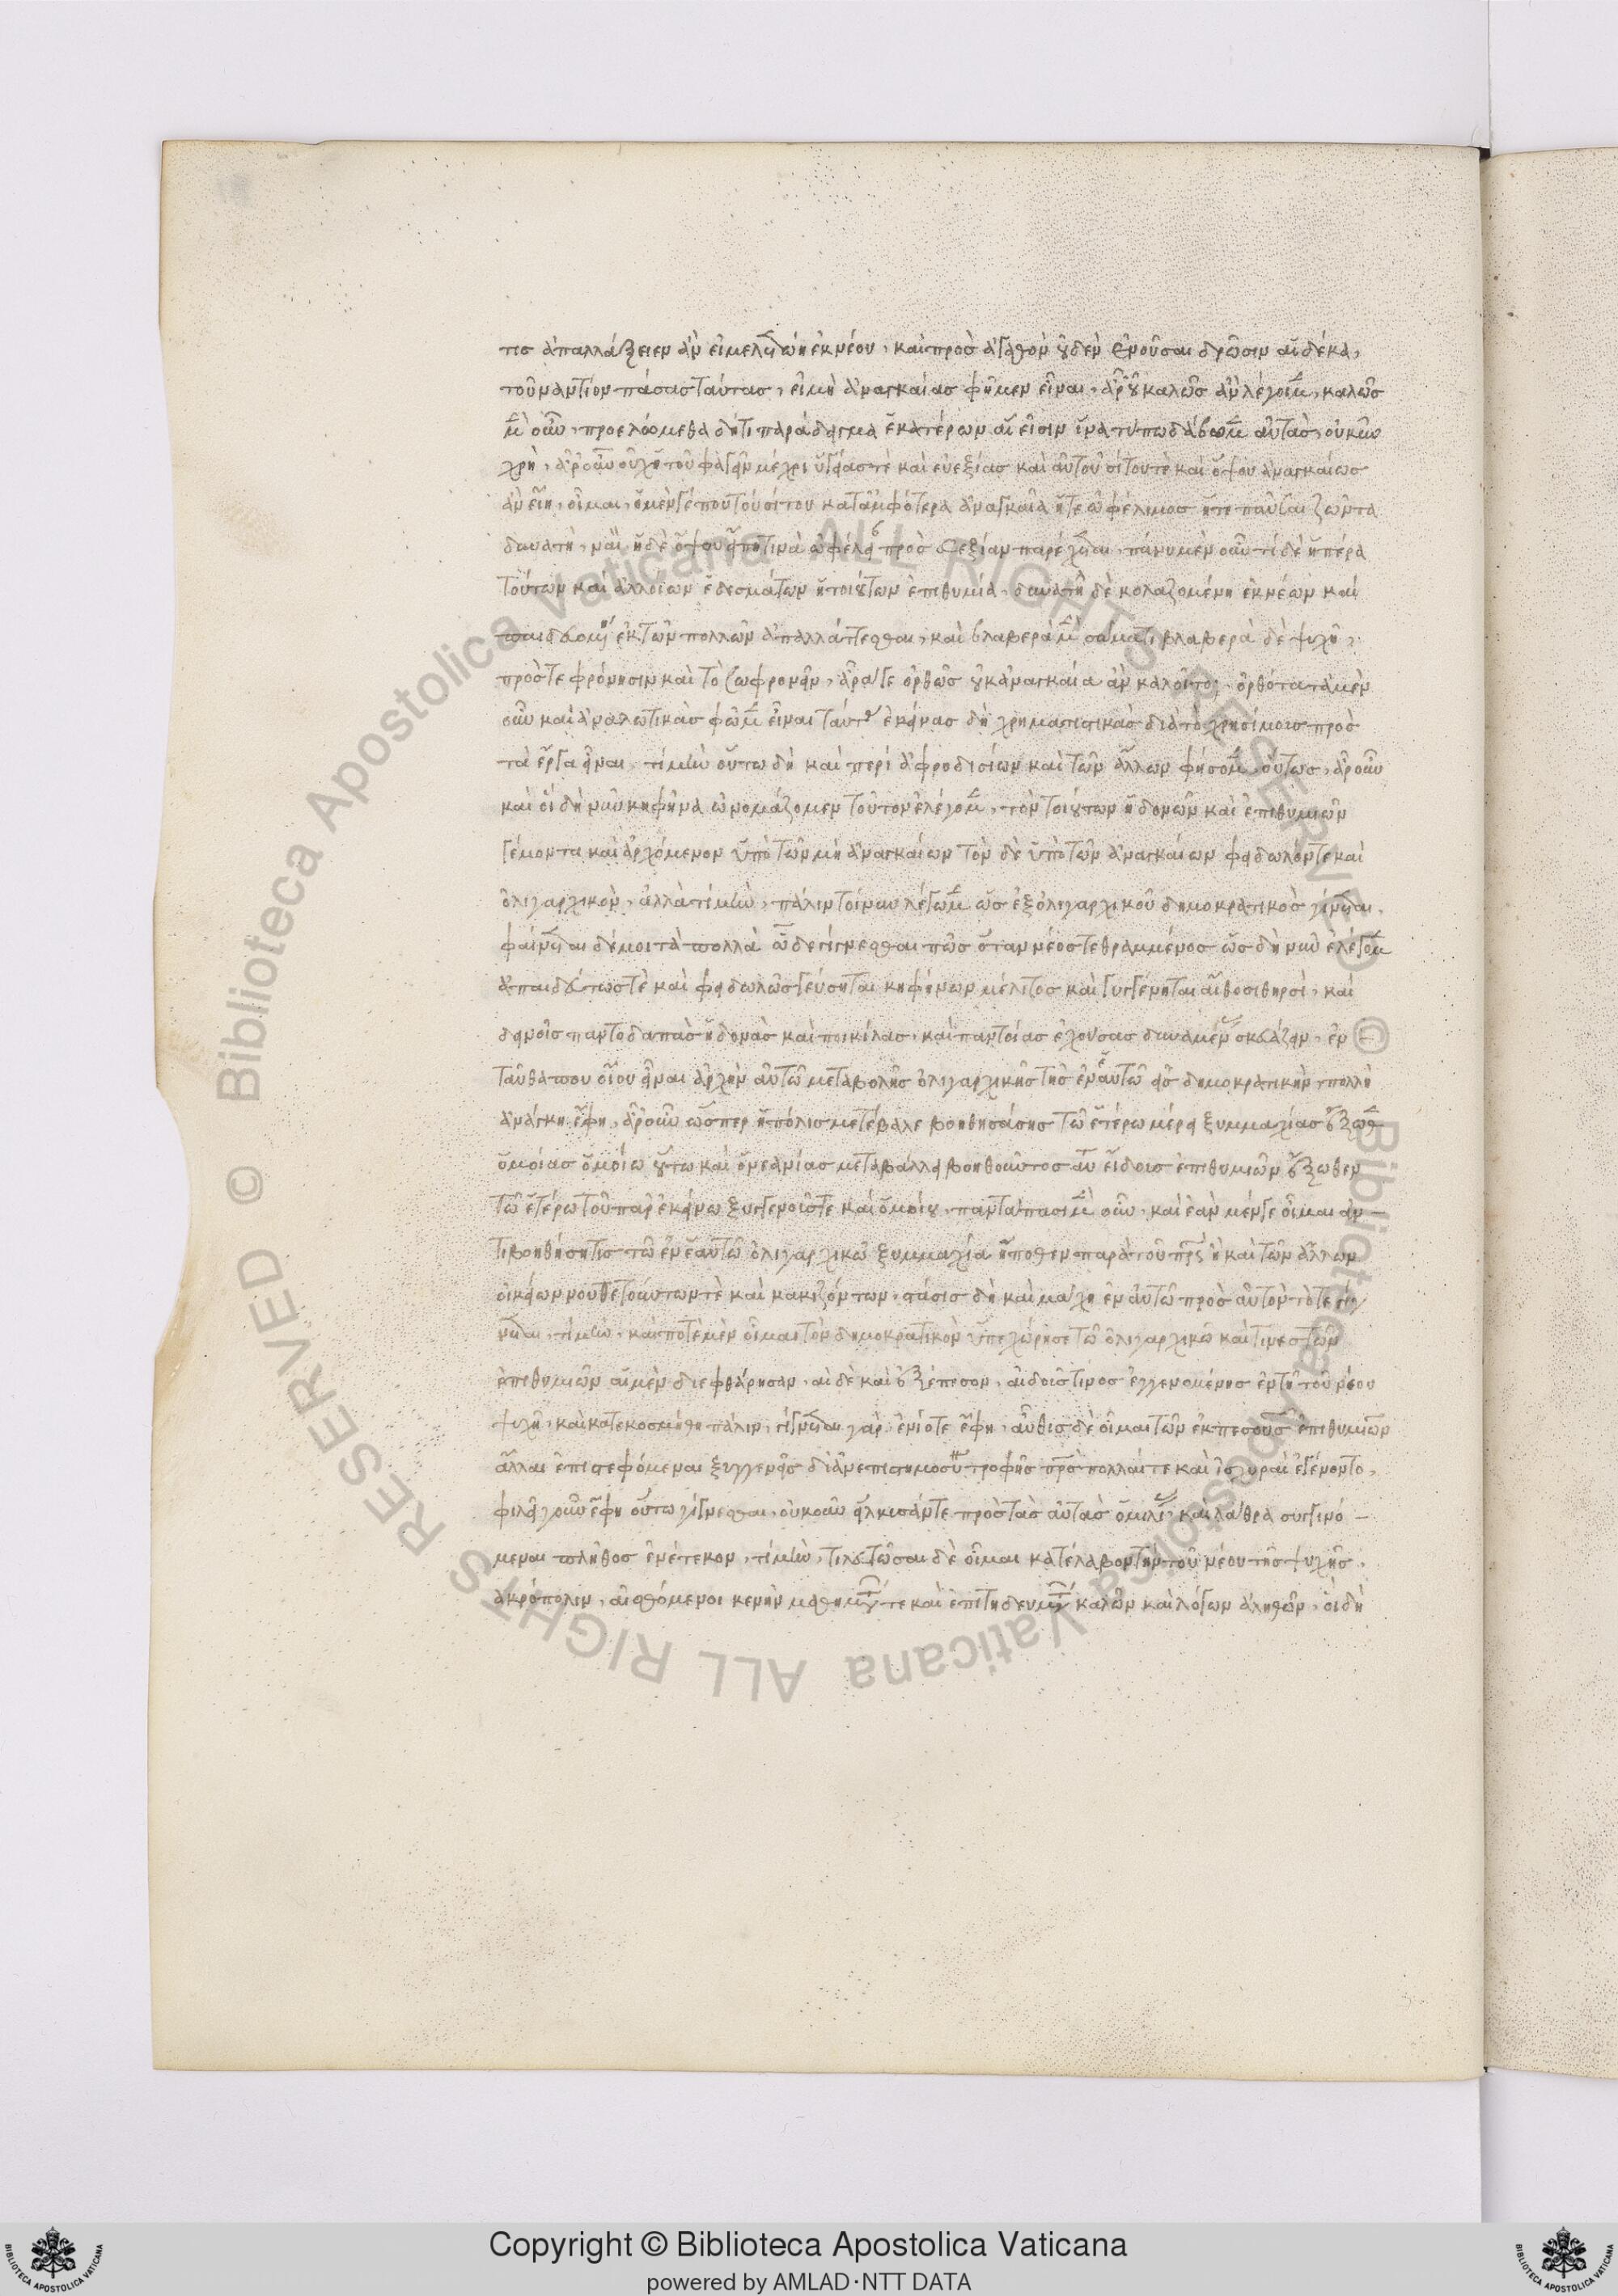 τισ ἀπαλλάξειεν ἂν εἰ μελετώη ἐκ νέου, καὶ πρὸσ ἀγαθὸν οὐδὲν ἐνοῦσαι δρῶσιν αἱ δέ κα,
τοὐναντίον πάσασ ταύτασ, εἰ μὴ ἀναγκαίασ φῆμεν εἶναι, ἆρ' οὐ καλῶσ ἂν λέγοιμεν, καλῶσ
μὲν οὖν, προελώμεθα δή τι παράδειγμα ἑκατέρων αἵ εἰσιν ἵνα τύπω λάβωμεν αὐτάσ, οὐκοῦν
χρή, ἆρ' οὖν οὐχ ἡ τοῦ φαγεῖν μέχρι ὑγιείασ τὲ καὶ εὐεξίασ καὶ αὐτοῦ σίτου τὲ καὶ ὄψου ἀναγκαίωσ
ἂν εἴη, οἶμαι, ἡ μέν γέ που τοῦ σίτου κατ' ἀμφότερα ἀναγκαῖα ἥτε ὠφέλιμοσ ἥτε παῦσαι ζῶντα
δυνατή, ναί, ἡ δὲ ὄψου εἴ πή τινα ὠφέλειαν πρὸσ εὐεξίαν παρέχεται, πάνυ μὲν οὖν τί δὲ ἡ πέρα
τούτων καὶ ἀλλοίων ἐδεσμάτων ἢ τοιούτων ἐπιθυμία, δυνατὴ δὲ κολαζομένη ἐκ νέων καὶ
παιδευομένη ἐκ τῶν πολλῶν ἀπαλλάττεσθαι, καὶ βλαβερὰ μὲν σώματι βλαβερὰ δὲ ψυχῆ,
πρόσ τε φρόνησιν καὶ τὸ σωφρονεῖν, ἆρά γε ὀρθῶσ οὐκ ἀναγκαία ἂν καλοῖτο, ὀρθότατα μὲν
οὖν καὶ ἀναλωτικὰσ φῶμεν εἶναι ταύτασ ἐκείνασ δὴ χρηματιστικὰσ διὰ τὸ χρησίμουσ πρὸσ
τὰ ἔργα εἶναι, τί μὴν οὕτω δὴ καὶ περὶ ἀφροδισίων καὶ τῶν ἄλλων φήσομεν, οὕτωσ, ἆρ' οὖν
καὶ ὃν δὴ νῦν κηφῆνα ὠνομάζομεν τοῦτον ἐλέγομεν, τὸν τοιούτων ἡδονῶν καὶ ἐπιθυμιῶν
γέμοντα καὶ ἀρχόμενον ὑπὸ τῶν μὴ ἀναγκαίων τὸν δὲ ὑπὸ τῶν ἀναγκαίων φειδωλόν τε καὶ
ὀλιγαρχικόν, ἀλλὰ τί μήν, πάλιν τοίνυν λέγωμεν ὡσ ἐξ ὀλιγαρχικοῦ δημοκρατικὸσ γίνεται,
φαίνεται δέ μοι τὰ πολλὰ ὧδε γίγνεσθαι πῶσ ὅταν νέοσ τεθραμμένοσ ὡσ δὴ νῦν ἐλέγομεν
ἀπαιδεύτωσ τὲ καὶ φειδωλῶσ γεύσηται κηφήνων μέλιτοσ καὶ συγγένηται αἴθοσι θηρσί, καὶ
δεινοῖσ παντοδαπὰσ ἡδονὰσ καὶ ποικίλασ, καὶ παντοίασ ἐχούσασ δυναμένοισ σκευάζειν, ἐν –
ταῦθα που οἴου εἶναι ἀρχὴν αὐτῶ μεταβολῆσ ὀλιγαρχικῆσ τῆσ ἐν ἑαυτῶ εἰσ δημοκρατικήν, πολλὴ
ἀνάγκη ἔφη, ἆρ' οὖν ὥσπερ ἡ πόλισ μετέβαλε βοηθησάσησ τῶ ἑτέρω μέρει ξυμμαχίασ ἔξωθεν
ὁμοίασ ὁμοίω οὕτω καὶ ὁ νεανίασ μεταβάλλει βοηθοῦντοσ αὖ εἴδουσ ἐπιθυμιῶν ἔξωθεν
τῶ ἑτέρω τοῦ παρ' ἐκείνω ξυγγενοῦσ τε καὶ ὁμοίου, παντάπασι μὲν οὖν, καὶ ἐὰν μέν γε οἶμαι ἀν –
τιβοηθήση τισ τῶ ἐν ἑαυτῶ ὀλιγαρχικῶ ξυμμαχία ἤ ποθεν παρὰ τοῦ πατρὸσ ἢ καὶ τῶν ἄλλων
οἰκείων νουθετούντων τὲ καὶ κακιζόντων, στάσισ δὴ καὶ μάχη ἐν αὐτῶ πρὸσ αὐτὸν τότε γίγ
νεται, τί μήν, καὶ ποτὲ μὲν οἶμαι τὸν δημοκρατικὸν ὑπεχώρησε τῶ ὀλιγαρχικῶ καί τινεσ τῶν
ἐπιθυμιῶν αἱ μὲν διεφθάρησαν, αἱ δὲ καὶ ἐξέπεσον, αἰδοῦσ τινὸσ ἐγγενομένησ ἐν τῆ τοῦ νέου
ψυχῆ, καὶ κατεκοσμήθη πάλιν, γίγνεται γὰρ ἐνίοτε ἔφη, αὖθισ δὲ οἶμαι τῶν ἐκπεσουσῶν ἐπιθυμιῶν
ἄλλαι ἐπιτρεφόμεναι ξυγγενεῖσ δι' ἀνεπιστημοσύνην τροφῆσ πρσ πολλαί τε καὶ ἰσχυραὶ ἐγένοντο,
φιλεῖ γοῦν ἔφη οὕτω γίγνεσθαι, οὐκοῦν εἵλκυσάν τε πρὸσ τὰσ αὐτὰσ ὁμιλίασ, καὶ λάθρα συγγινό –
μεναι πλῆθοσ ἐνέτεκον, τί μήν, τελευτῶσαι δὲ οἶμαι κατέλαβον τὴν τοῦ νέου τῆσ ψυχῆσ,
ἀκρόπολιν, αἰσθόμενοι κενὴν μαθημάτων τε καὶ ἐπιτηδευμάτων καλῶν καὶ λόγων ἀληθῶν, οἳ δὴ
Copyright © Biblioteca Apostolica Vaticana
powered by AMLAD·NTT DATA